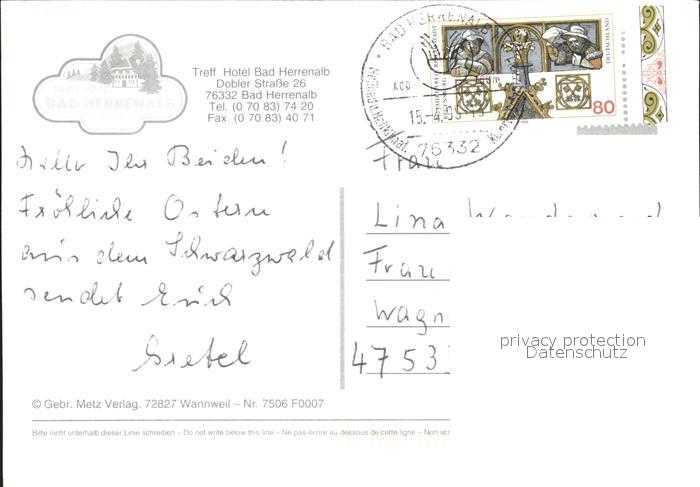 TREFF HOTEL
BAD HERRENALB
Treff Hotel Bad Herrenalb
Dobler Straße 26
76332 Bad Herrenalb
Tel. (0 70 83) 74 20
Fax (0 70 83) 40 71
BAD HERRENALB
DEUTSCHLAND
80
76332
Hallo Ihr Beiden!
Fröhliche Ostern
aus dem Schwarzwald
sendet Euch
Gretel
Frau
Lina
Frau
Wagn
4753
privacy protection
Datenschutz
© Gebr. Metz-Verlag. 72827 Wannweil – Nr. 7506 F0007
Bitte nicht unterhalb dieser Linie schreiben – Do not write below this line – Ne pas écrire au dessous de cette ligne – Non scr